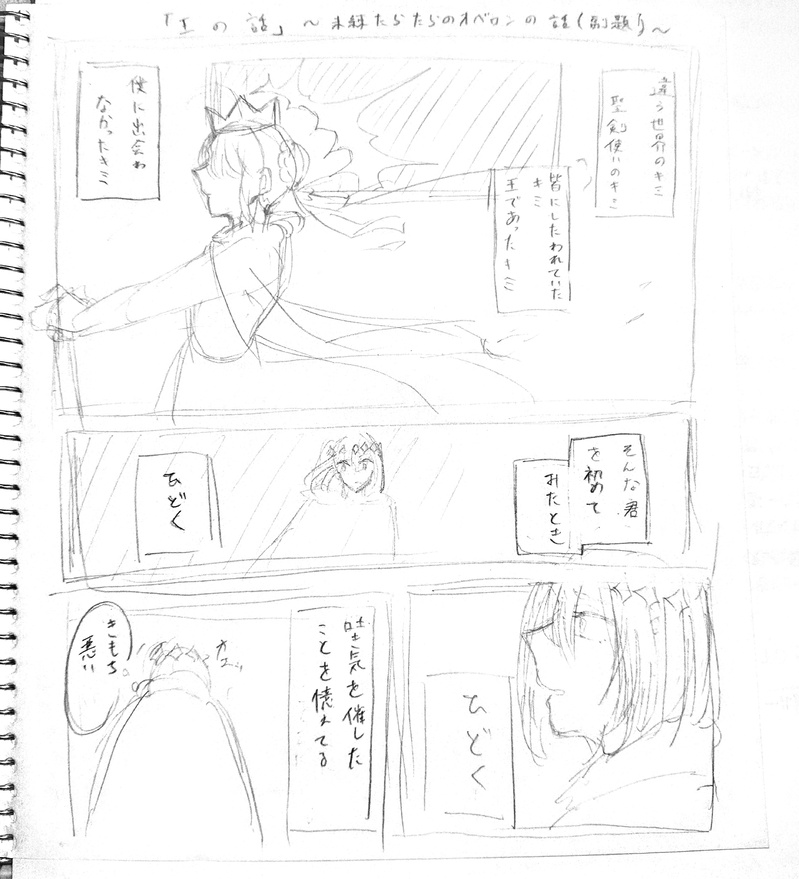 「王の話」～未練たらたらのオベロンの話(副題)～
違う世界のキミ
聖剣使いのキミ
皆にしたわれていた
キミ
王であったキミ
僕に出会わ
なかったキミ
そんな君
を初めて
みたとき
ひどく
ひどく
吐き気を催した
ことを憶えてる
きもち
悪い